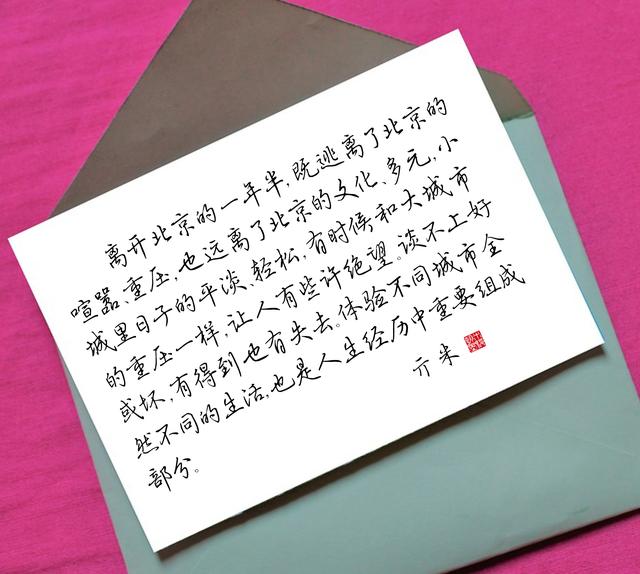 离开北京的一年半,既逃离了北京的
喧嚣、重压,也远离了北京的文化、多元,小
城里日子的平淡、轻松,有时候和大城市
的重压一样,让人有些许绝望。谈不上好
或坏,有得到也有失去。体验不同城市全
然不同的生活,也是人生经历中重要组成
部分。
亓米